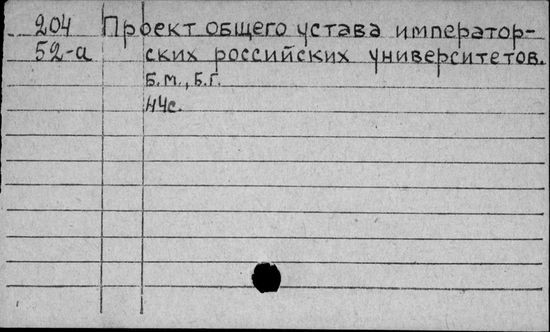 204 Проект общего устава император-
52-а ских российских университетов.
Б.м., Б.г.
44с.